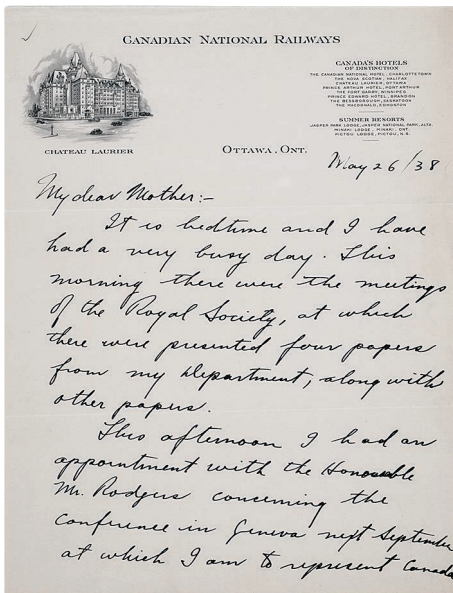 CANADIAN NATIONAL RAILWAYS
CANADA'S HOTELS
OF DISTINCTION
THE CANADIAN NATIONAL HOTEL, CHARLOTTETOWN
THE NOVA SCOTIAN, HALIFAX
CHATEAU LAURIER, OTTAWA
PRINCE ARTHUR HOTEL, PORT ARTHUR
THE FORT GARRY, WINNIPEG
PRINCE EDWARD HOTEL, BRANDON
THE BESSBOROUGH, SASKATOON
THE MACDONALD, EDMONTON
SUMMER RESORTS
JASPER PARK LODGE, JASPER NATIONAL PARK, ALTA.
MINAKI LODGE, MINAKI, ONT.
PICTOU LODGE, PICTOU, N.S.
CHATEAU LAURIER
OTTAWA, ONT.
May 26/38
My dear Mother:-
It is bedtime and I have
had a very busy day. This
morning there were the meetings
of the Royal Society, at which
there were presented four papers
from my Department, along with
other papers.
This afternoon I had an
appointment with the Honourable
Mr. Rodgers concerning the
Conference in Geneva next September
at which I am to represent Canada